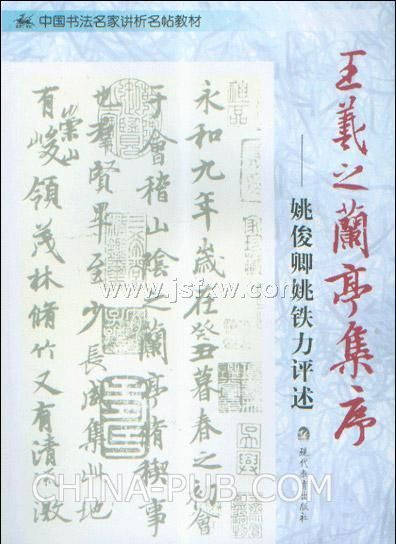 中国书法名家讲析名帖教材
王羲之蘭亭集序
——姚俊卿姚铁力评述
现代教育出版社
永和九年歲在癸丑暮春之初會
于會稽山陰之蘭亭脩禊事
也羣賢畢至少長咸集此地
有崇山峻領茂林脩竹又有清流激
www.jsfxw.com
CHINA-PUB.COM